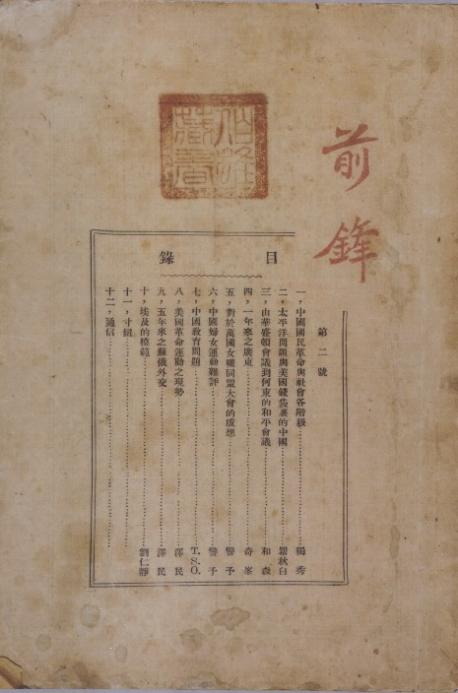 前鋒
第二號
目錄
一，中國國民革命與社會各階級……獨秀
二，太平洋問題與美國錢袋裏的中國……瞿秋白
三，由華盛頓會議到何東的和平會議……和森
四，一年來之廣東……奇峯
五，對於萬國女權同盟大會的感想……警予
六，中國婦女運動雜評……警予
七，中國教育問題……T.S.O.
八，美國革命運動之現勢……澤民
九，五年來之蘇俄外交……澤民
十，埃及的模範……劉仁靜
十一，寸鐵……
十二，通信……